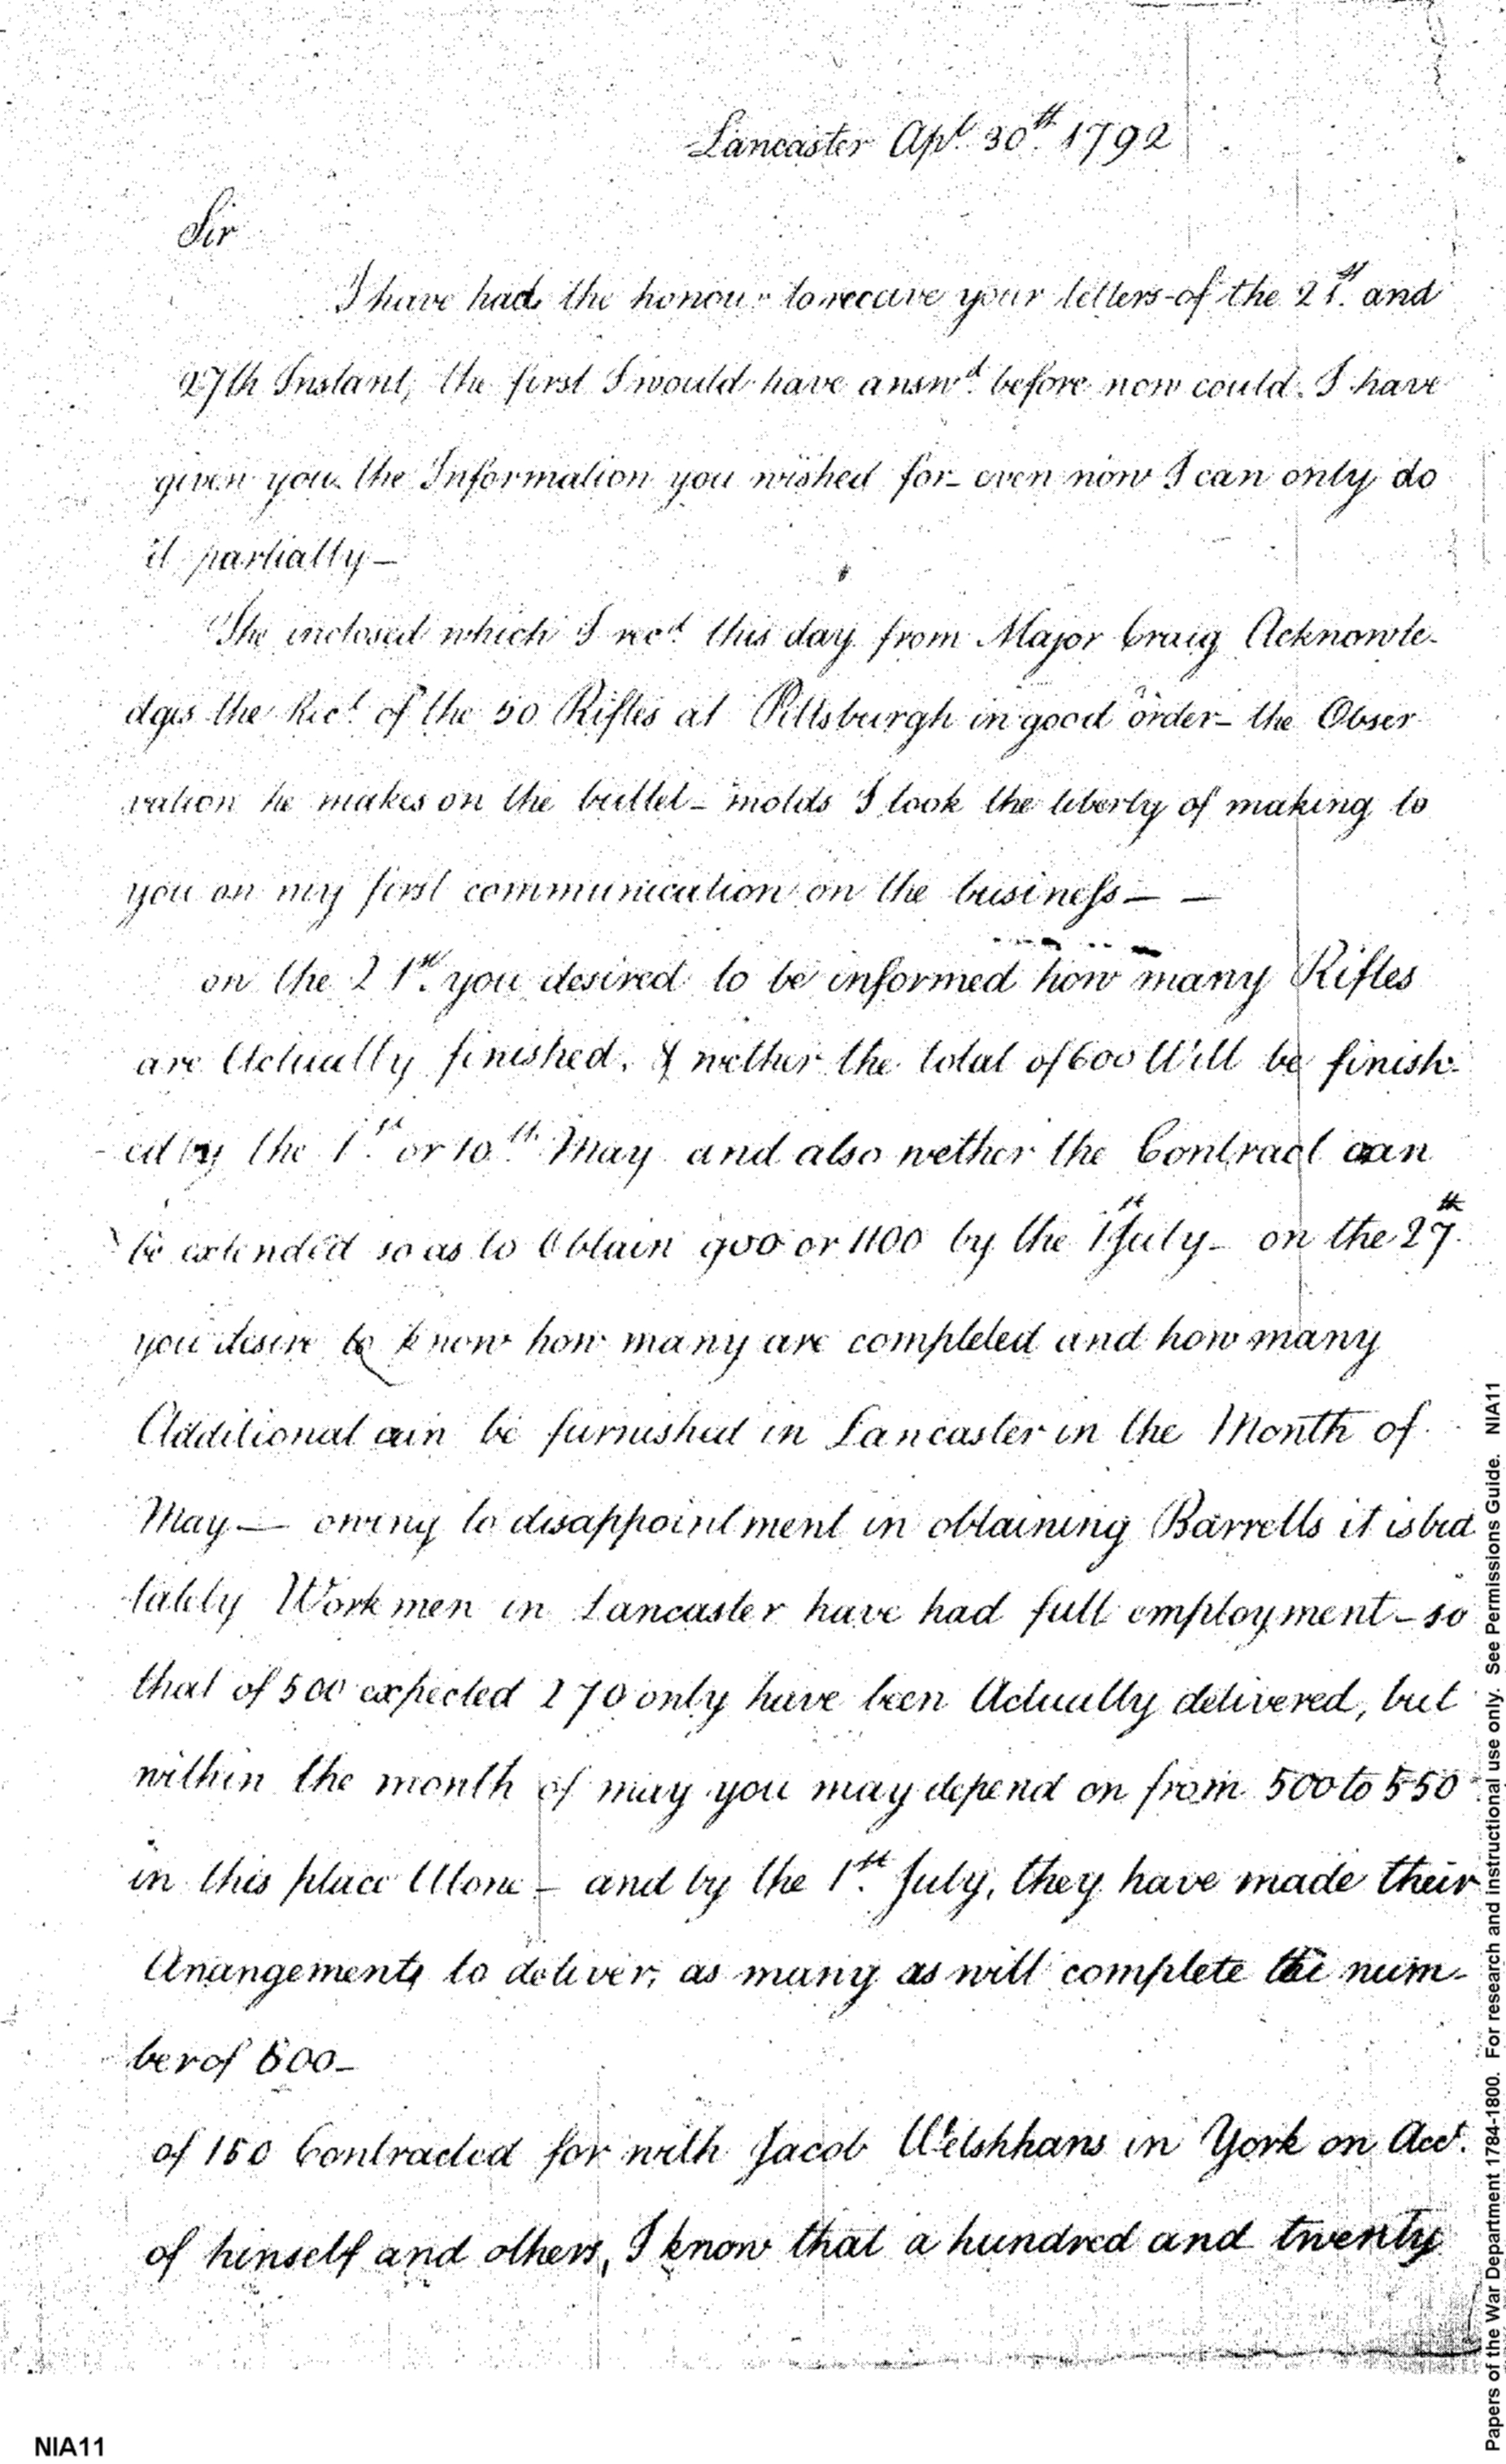 Lancaster Apl. 30th. 1792
Sir
I have had the honour to receive your letters of the 21st. and
27th Instant, the first I would have answd. before now could I have
given you the Information you wished for_ even now I can only do
it partially—
The inclosed which I recd. this day from Major Craig Acknowle-
dges the Rect. of the 50 Rifles at Pittsburgh in good order_ the Obser
vation he makes on the bullet_ molds I took the liberty of making to
you on my first communication on the business— —
on the 21st. you desired to be informed how many Rifles
are Actually finished. & wether the total of 600 Will be finish-
ed by the 1st. or 10th. May and also wether the Contract can
be extended so as to Obtain 900 or 1100 by the 1st July_ on the 27th.
you desire to know how many are completed and how many
Additional can be furnished in Lancaster in the Month of
May— owing to disappointment in obtaining Barrells it is but
lately Workmen in Lancaster have had full employment_ so
that of 500 expected 270 only have been Actually delivered, but
within the month of may you may depend on from 500 to 550
in this place Alone_ and by the 1st. July, they have made their
Arrangements to deliver, as many as will complete the num-
ber of 600_
of 150 Contracted for with Jacob Welshhans in York on Acct.
of himself and others, I know that a hundred and twenty
Papers of the War Department 1784-1800. For research and instructional use only. See Permissions Guide. NIA11
NIA11